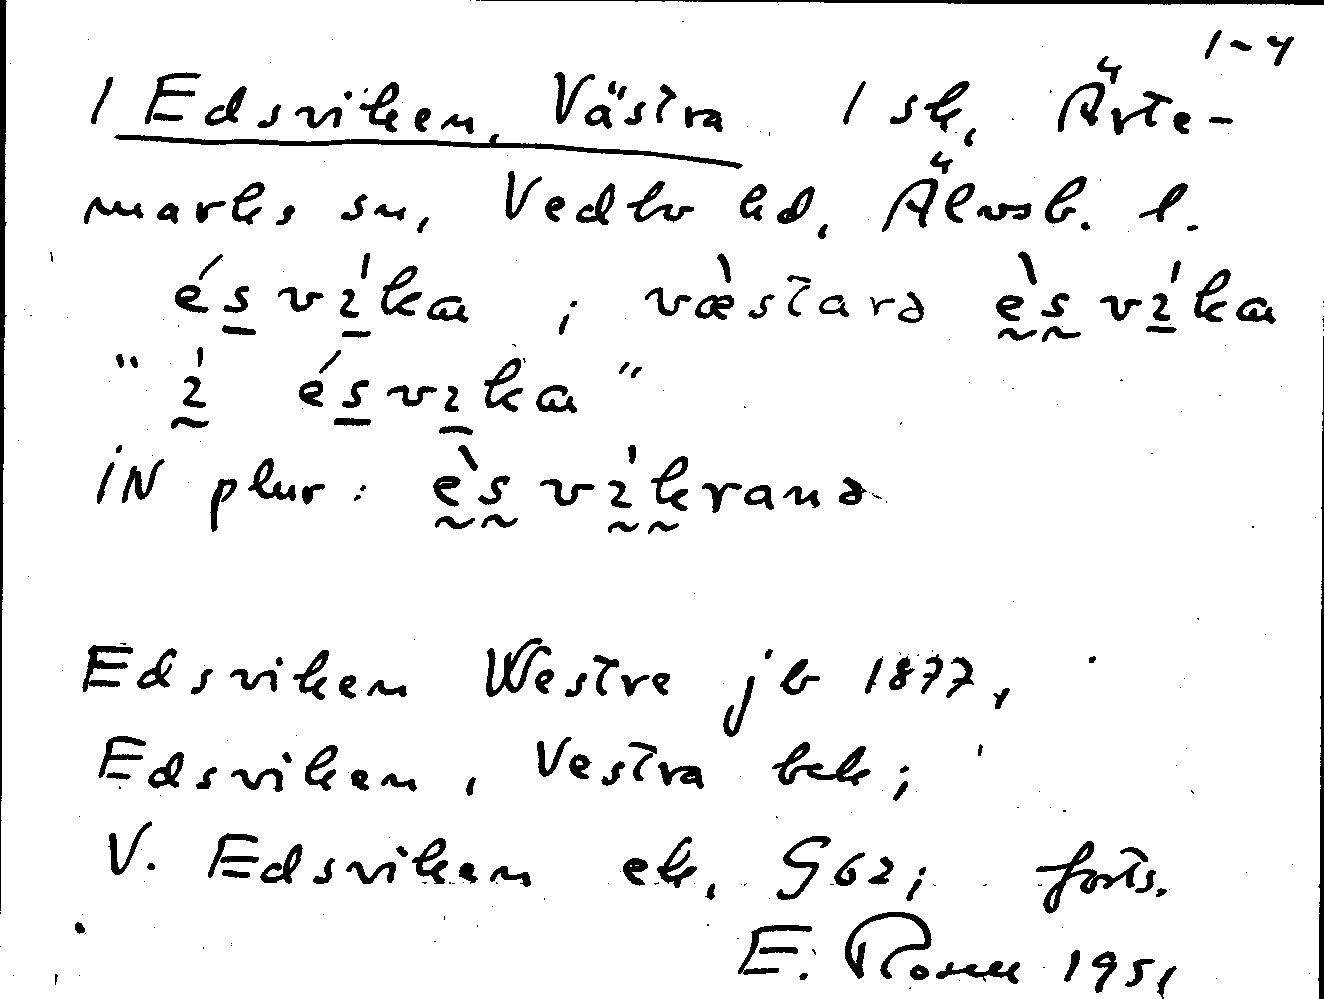 1-4
1 Edsviken, Västra 1 sk, Ärte-
marks sn, Vedbo hd, Älvsb. l.
és vɩ́ka ; væ̀starə ès vɩ́ka
"ɩ́ ésvɩka"
iN plur: ès vɩ́kranə
Edsviken Westre jb 1877,
Edsviken, Vestra bek;
V. Edsviken ek, G62; forts.
E. Rosell 1951